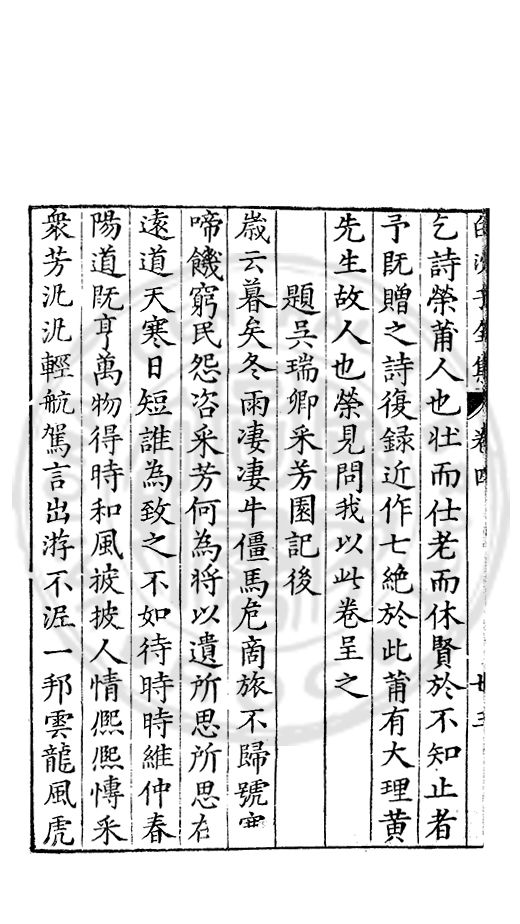 白沙子全集 卷四 廿三
乞詩榮莆人也壯而仕老而休賢於不知止者
予既贈之詩復録近作七絶於此莆有大理黄
先生故人也榮見問我以此卷呈之
題吴瑞卿采芳園記後
歳云暮矣冬雨凄凄牛僵馬危商旅不歸號寒
啼饑窮民怨咨采芳何為将以遺所思所思在
逺道天寒日短誰為致之不如待時時維仲春
陽道既亨萬物得時和風披披人情熈熈慱采
衆芳汎汎輕航駕言出游不泥一邦雲龍風虎